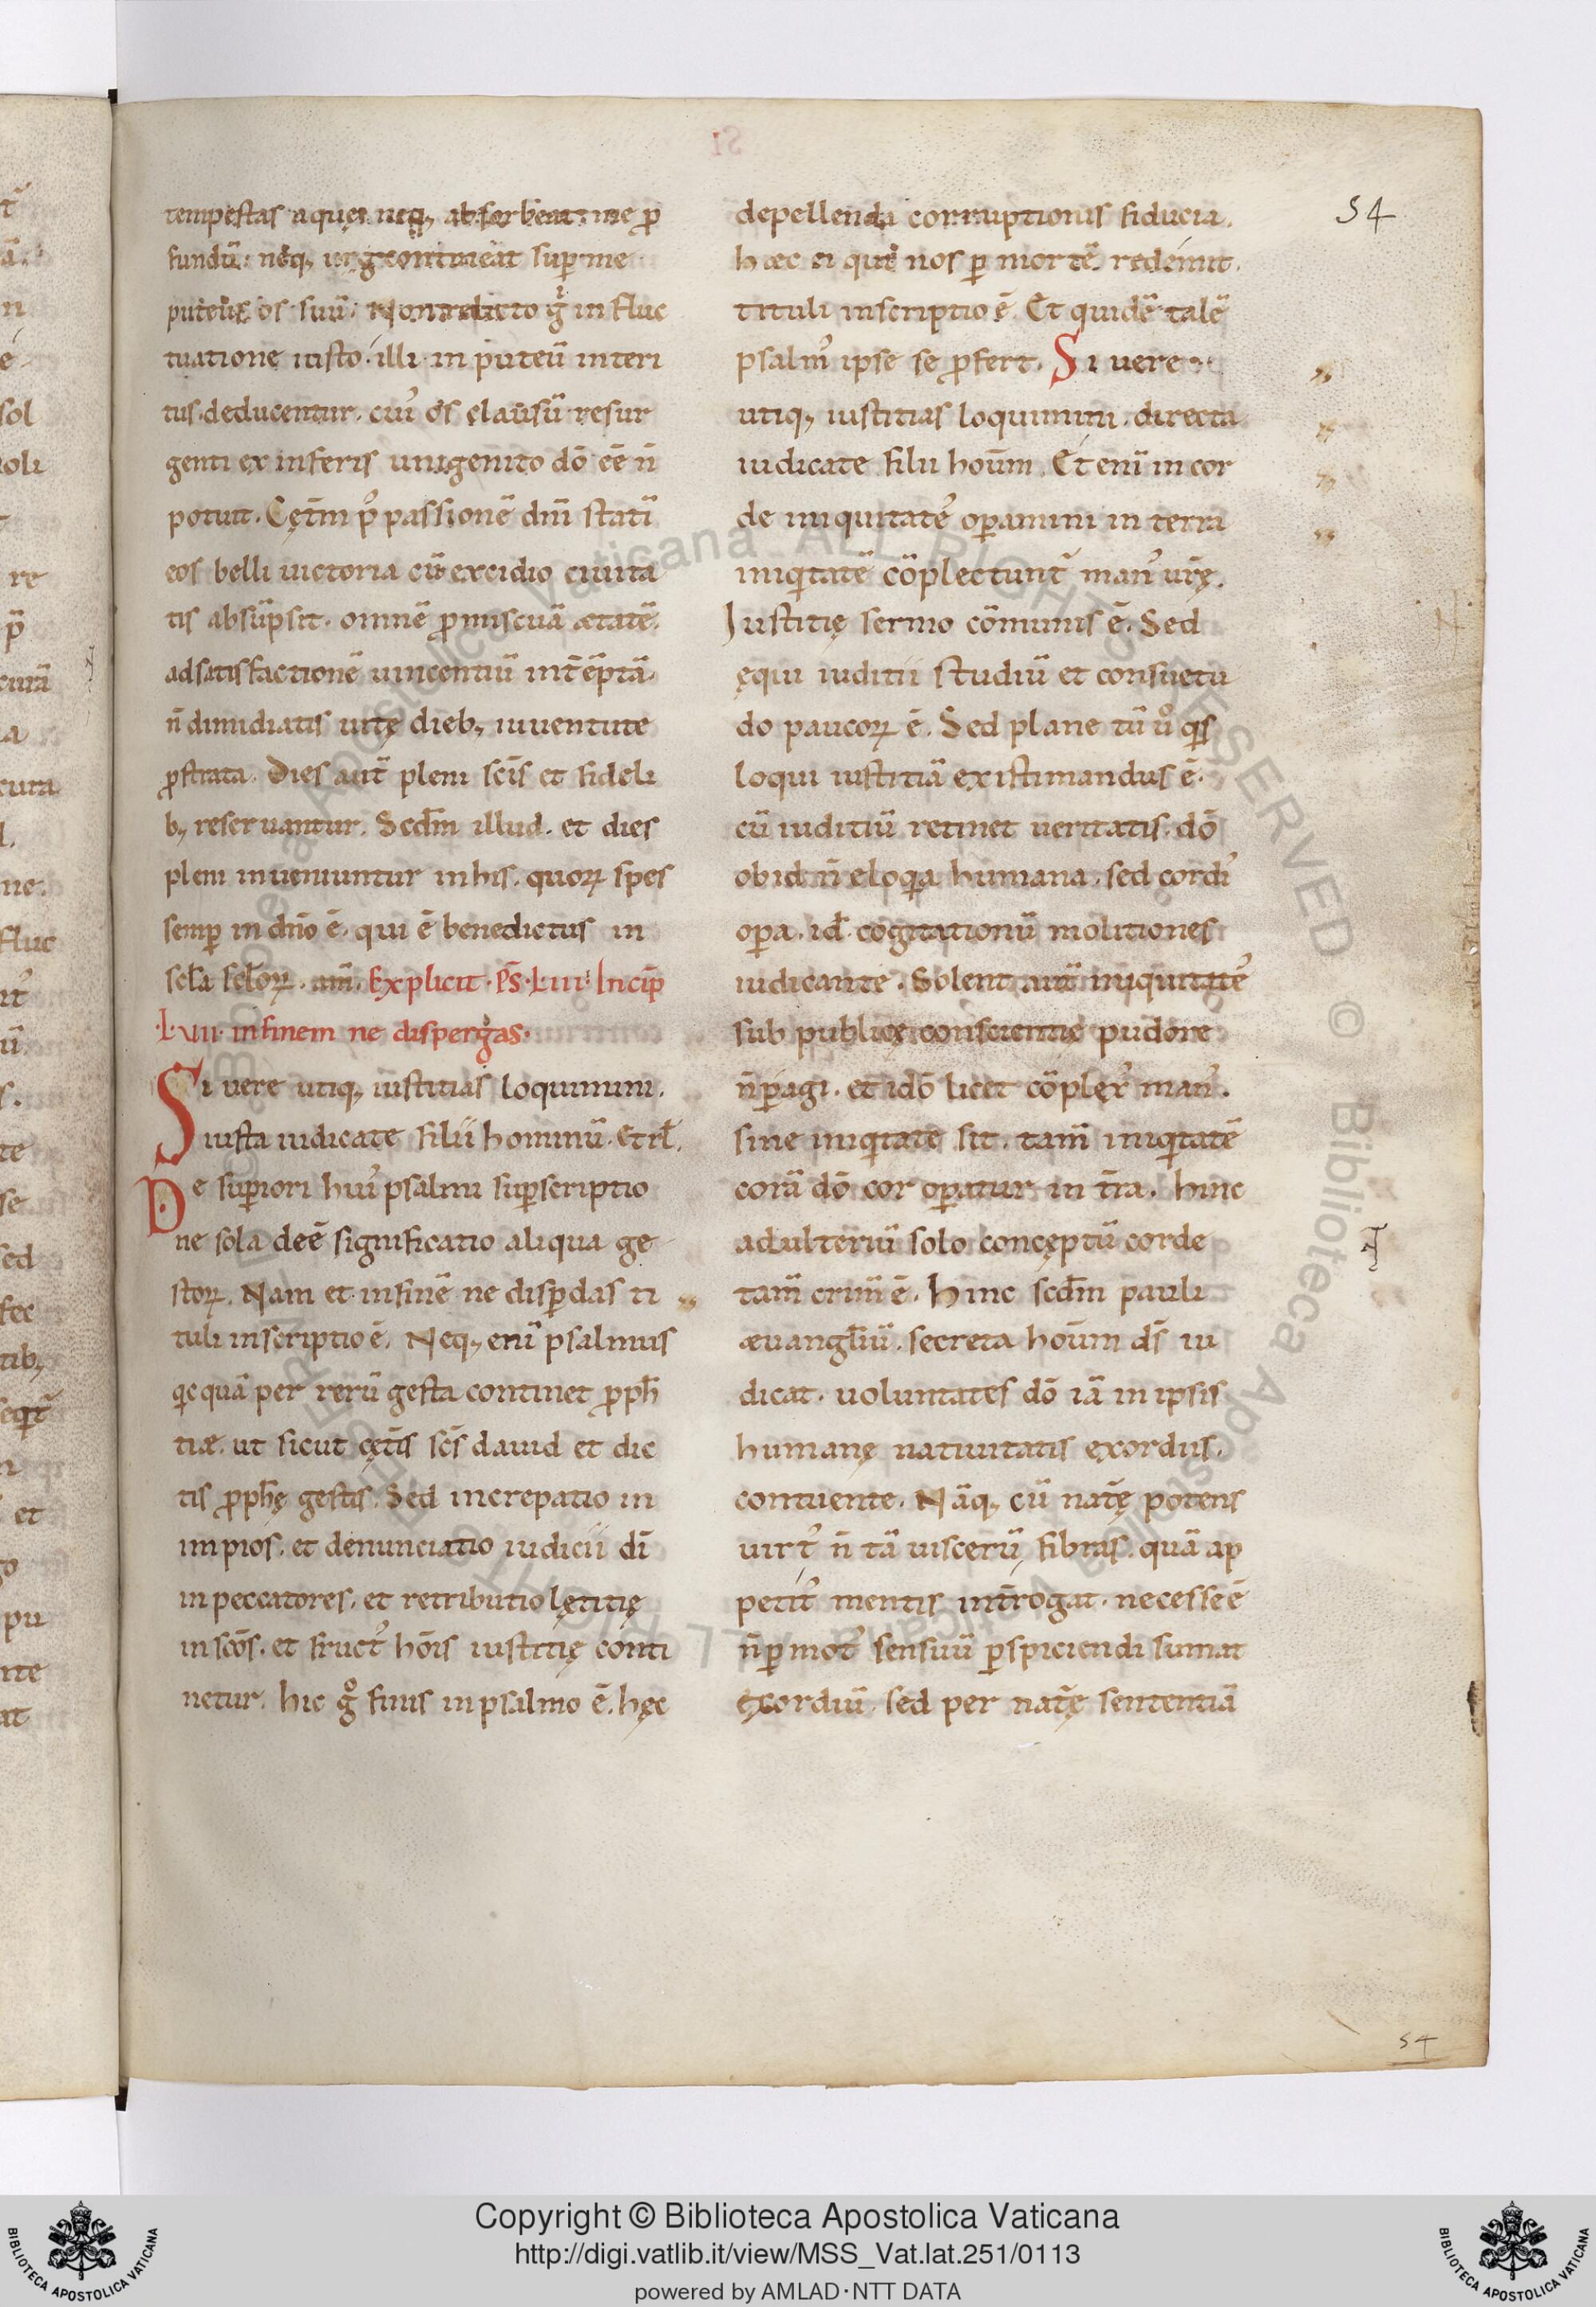 54
tempestas aquę. neq; absorbeat me ꝓ
fundū: neq; urgeat contineat suꝑ me
puteus os suū. Non relicto gͥ in fluc
tuatione iusto. illi in puteū interi
tus deducentur. cui᾽ os clausū resur
genti ex inferis unigenito dō eē n̄
potuit. Cęt̄m p᾽ passionē dn̄i statī
eos belli uictoria cū excidio ciuita
tis absūpsit. omnē ꝓmiscuā ætatē.
ad satisfactionē uincentiū int̄ēptā.
n̄ dimidiatis uitę dieb; iuuentute
ꝓstrata. Dies aut̄ pleni scīs et fideli
b; reseruantur. Scd̄m illud. et dies
pleni inueniuntur in his. quoꝝ spes
semꝑ in dn̄o ē. qui ē benedictus in
scl̄a scl̄oꝝ. am̄. Explicit. Ps̄. LVI. Incip̄
.LVII. in finem ne dispergas.
Si uere utiq; iustitias loquimini.
iusta iudicate filii hominū. et rl̄.
De suꝑiori hui᾽ psalmi suꝑscriptio
ne sola deē significatio aliqua ge
stoꝝ. Nam et in finē ne disꝑdas ti
tuli inscriptio ē. Neq; enī psalmus
qͥcquā per rerū gesta continet ꝓph̄
tiæ. ut sicut cęt̄is scs̄ dauid et dic
tis ꝓph̄ę gestis. Sed increpatio in
impios. et denunciatio iudicii dī
in peccatores. et retributio lętitię
in scōs. et fruct᾽ hōis iustitię conti
netur. hic gͦ finis in psalmo ē. hęc
depellenda corruptionis fiducia.
hæc ei qui nos ꝑ mortē redemit.
tituli inscriptio ē. Et quidē talē
psalm᾽ ipse se ꝓfert. Si uere
utiq; iustitias loquimini. directa
iudicate filii hoūm. Et enī in cor
de iniquitate᾽ oꝑamini in terra
iniqͥtatē cōplectunt̄ man᾽ ur̄ę.
Iustitię sermo cōmunis ē. Sed
ęqui iuditii studiū et consuetu
do paucoꝝ ē. Sed plane tū uͦ qͥs
loqui iustitiā existimandus ē.
cū iuditiū retinet ueritatis. dō
ob id n̄ eloqͥa humana. sed cordi᾽
oꝑa. id. cogitationū molitiones
iudicante. Solent aut̄ iniquitate᾽
sub publicę conscientię pudore
n̄ ꝑagi. et idō licet cōplex᾽ man᾽.
sine iniqͥtate sit. tam̄ iniqͥtatē
corā dō cor oꝑatur in t̄ra. hinc
adulteriū solo concęptū corde
tam̄ crim̄ ē. hinc scd̄m pauli
æuangl̄iū. secreta hoūm ds̄ iu
dicat. uoluntates dō iā in ipsis
humanę natiuitatis exordiis.
contuente. Nāq; cū nat̄ę potens
uirt᾽ n̄ tā uiscerū fibras. quā ap
petit᾽ mentis int̄rogat. necesse ē
n̄ ꝑ mot᾽ sensuū ꝑspiciendi sumat
exordiū. sed per nat̄ę sententiā
54
Copyright © Biblioteca Apostolica Vaticana
http://digi.vatlib.it/view/MSS_Vat.lat.251/0113
powered by AMLAD·NTT DATA